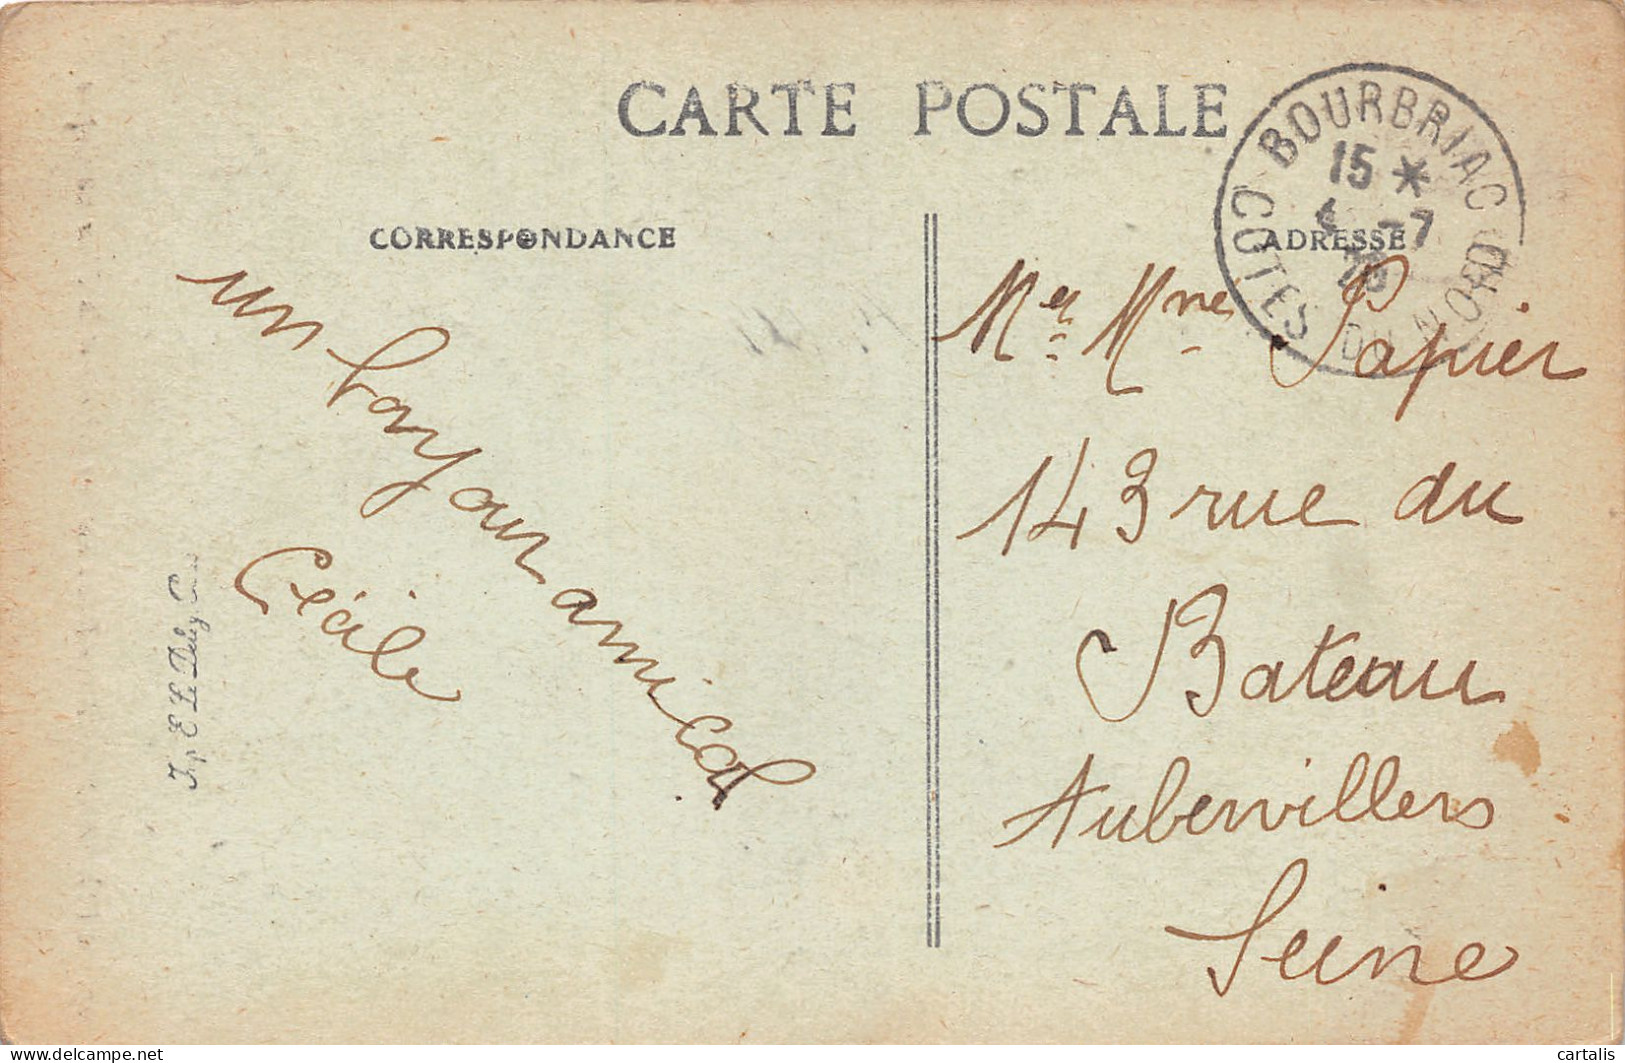 CARTE POSTALE
BOURBRIAC
15 *
-7
COTES DU NORD
CORRESPONDANCE
ADRESSE
un bonjour amical
Cécile
Mr Mme Papier
143 rue du
Bateau
Aubervillers
Seine
delcampe.net
cartalis